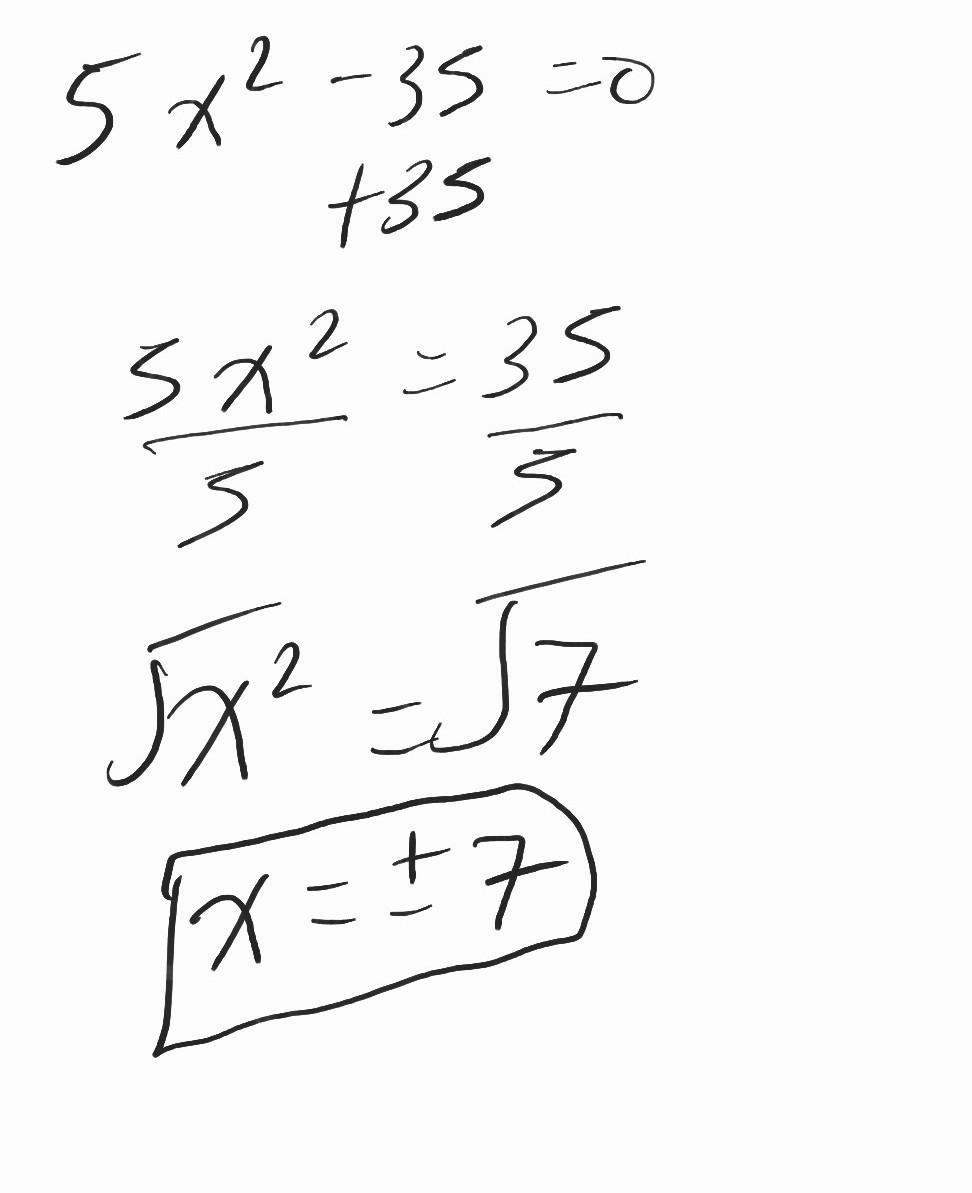 5x² - 35 = 0
+35
5x² = 35
5 5
√x² = √7
x = ± 7